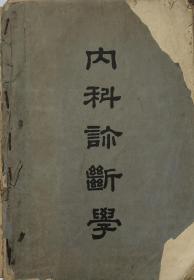 内科診斷學